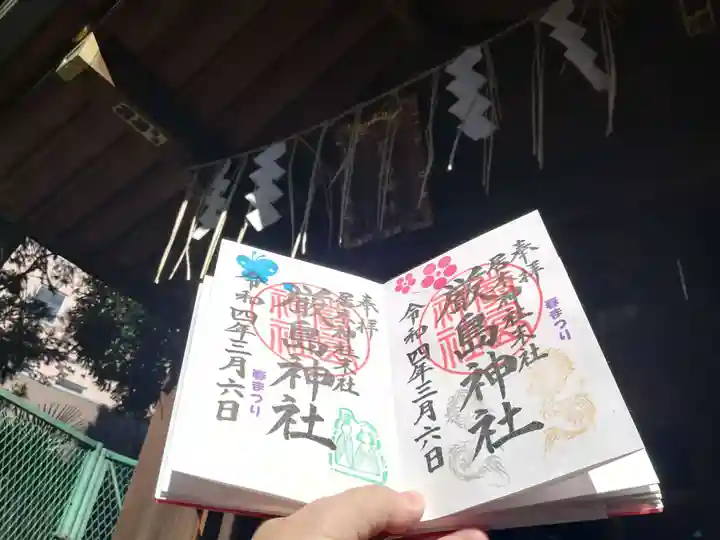 奉拝
厳島神社
令和四年三月六日
春まつり
奉拝
厳島神社
令和四年三月六日
春まつり